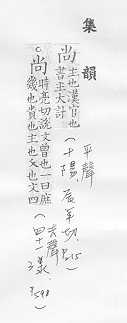 集韻
尚
主也漢官也
書主大計
平聲
(十陽,辰羊切,P.215)
。尚
時亮切說文曾也一曰庶
幾也貴也主也又也文四
去聲
(四十一漾,P.598)